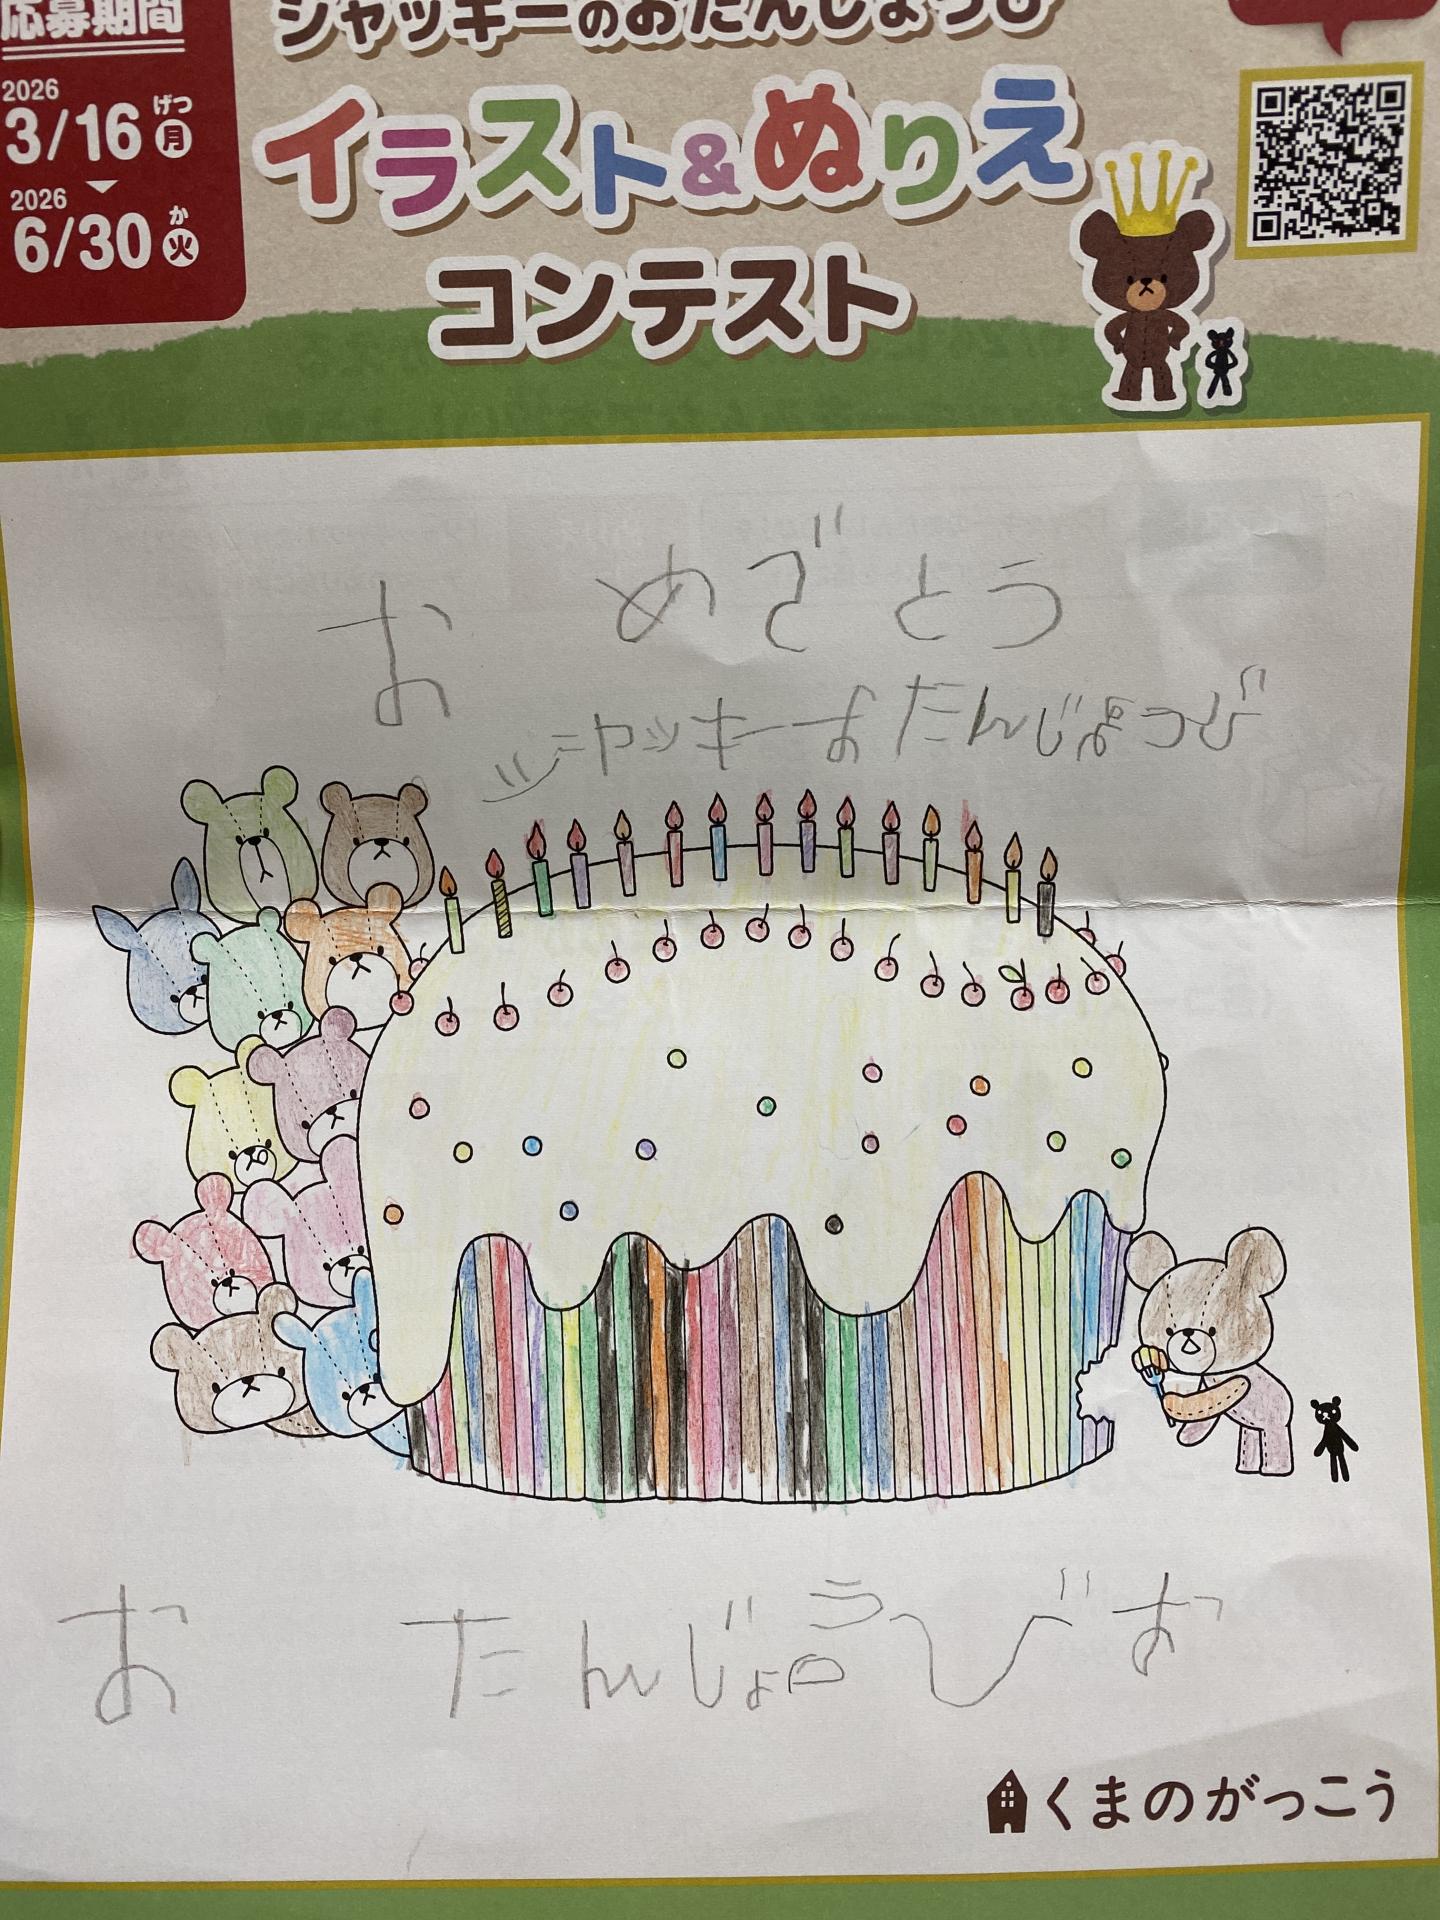 応募期間
ジャッキーのおたんじょうび
2026
3/16 げつ 月
2026
6/30 か 火
イラスト&ぬりえ
コンテスト
おめでとう
ジャッキーおたんじょうび
おたんじょうびお
くまのがっこう